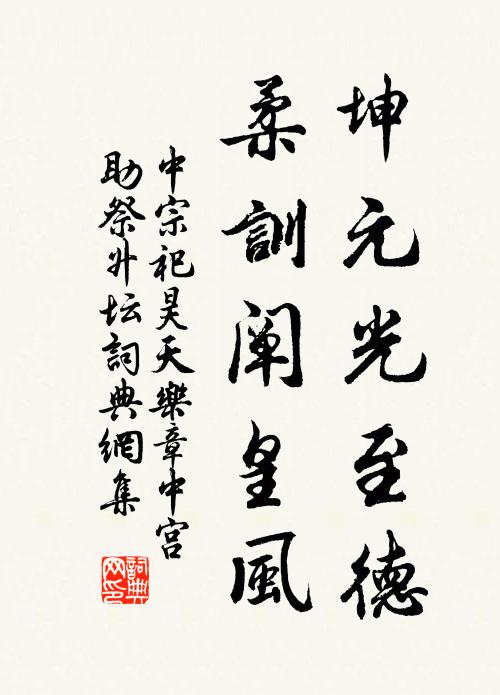 坤元光至德
柔訓闡皇風
中宗祀昊天樂章中宫
助祭升坛詞典網集
詞典网印